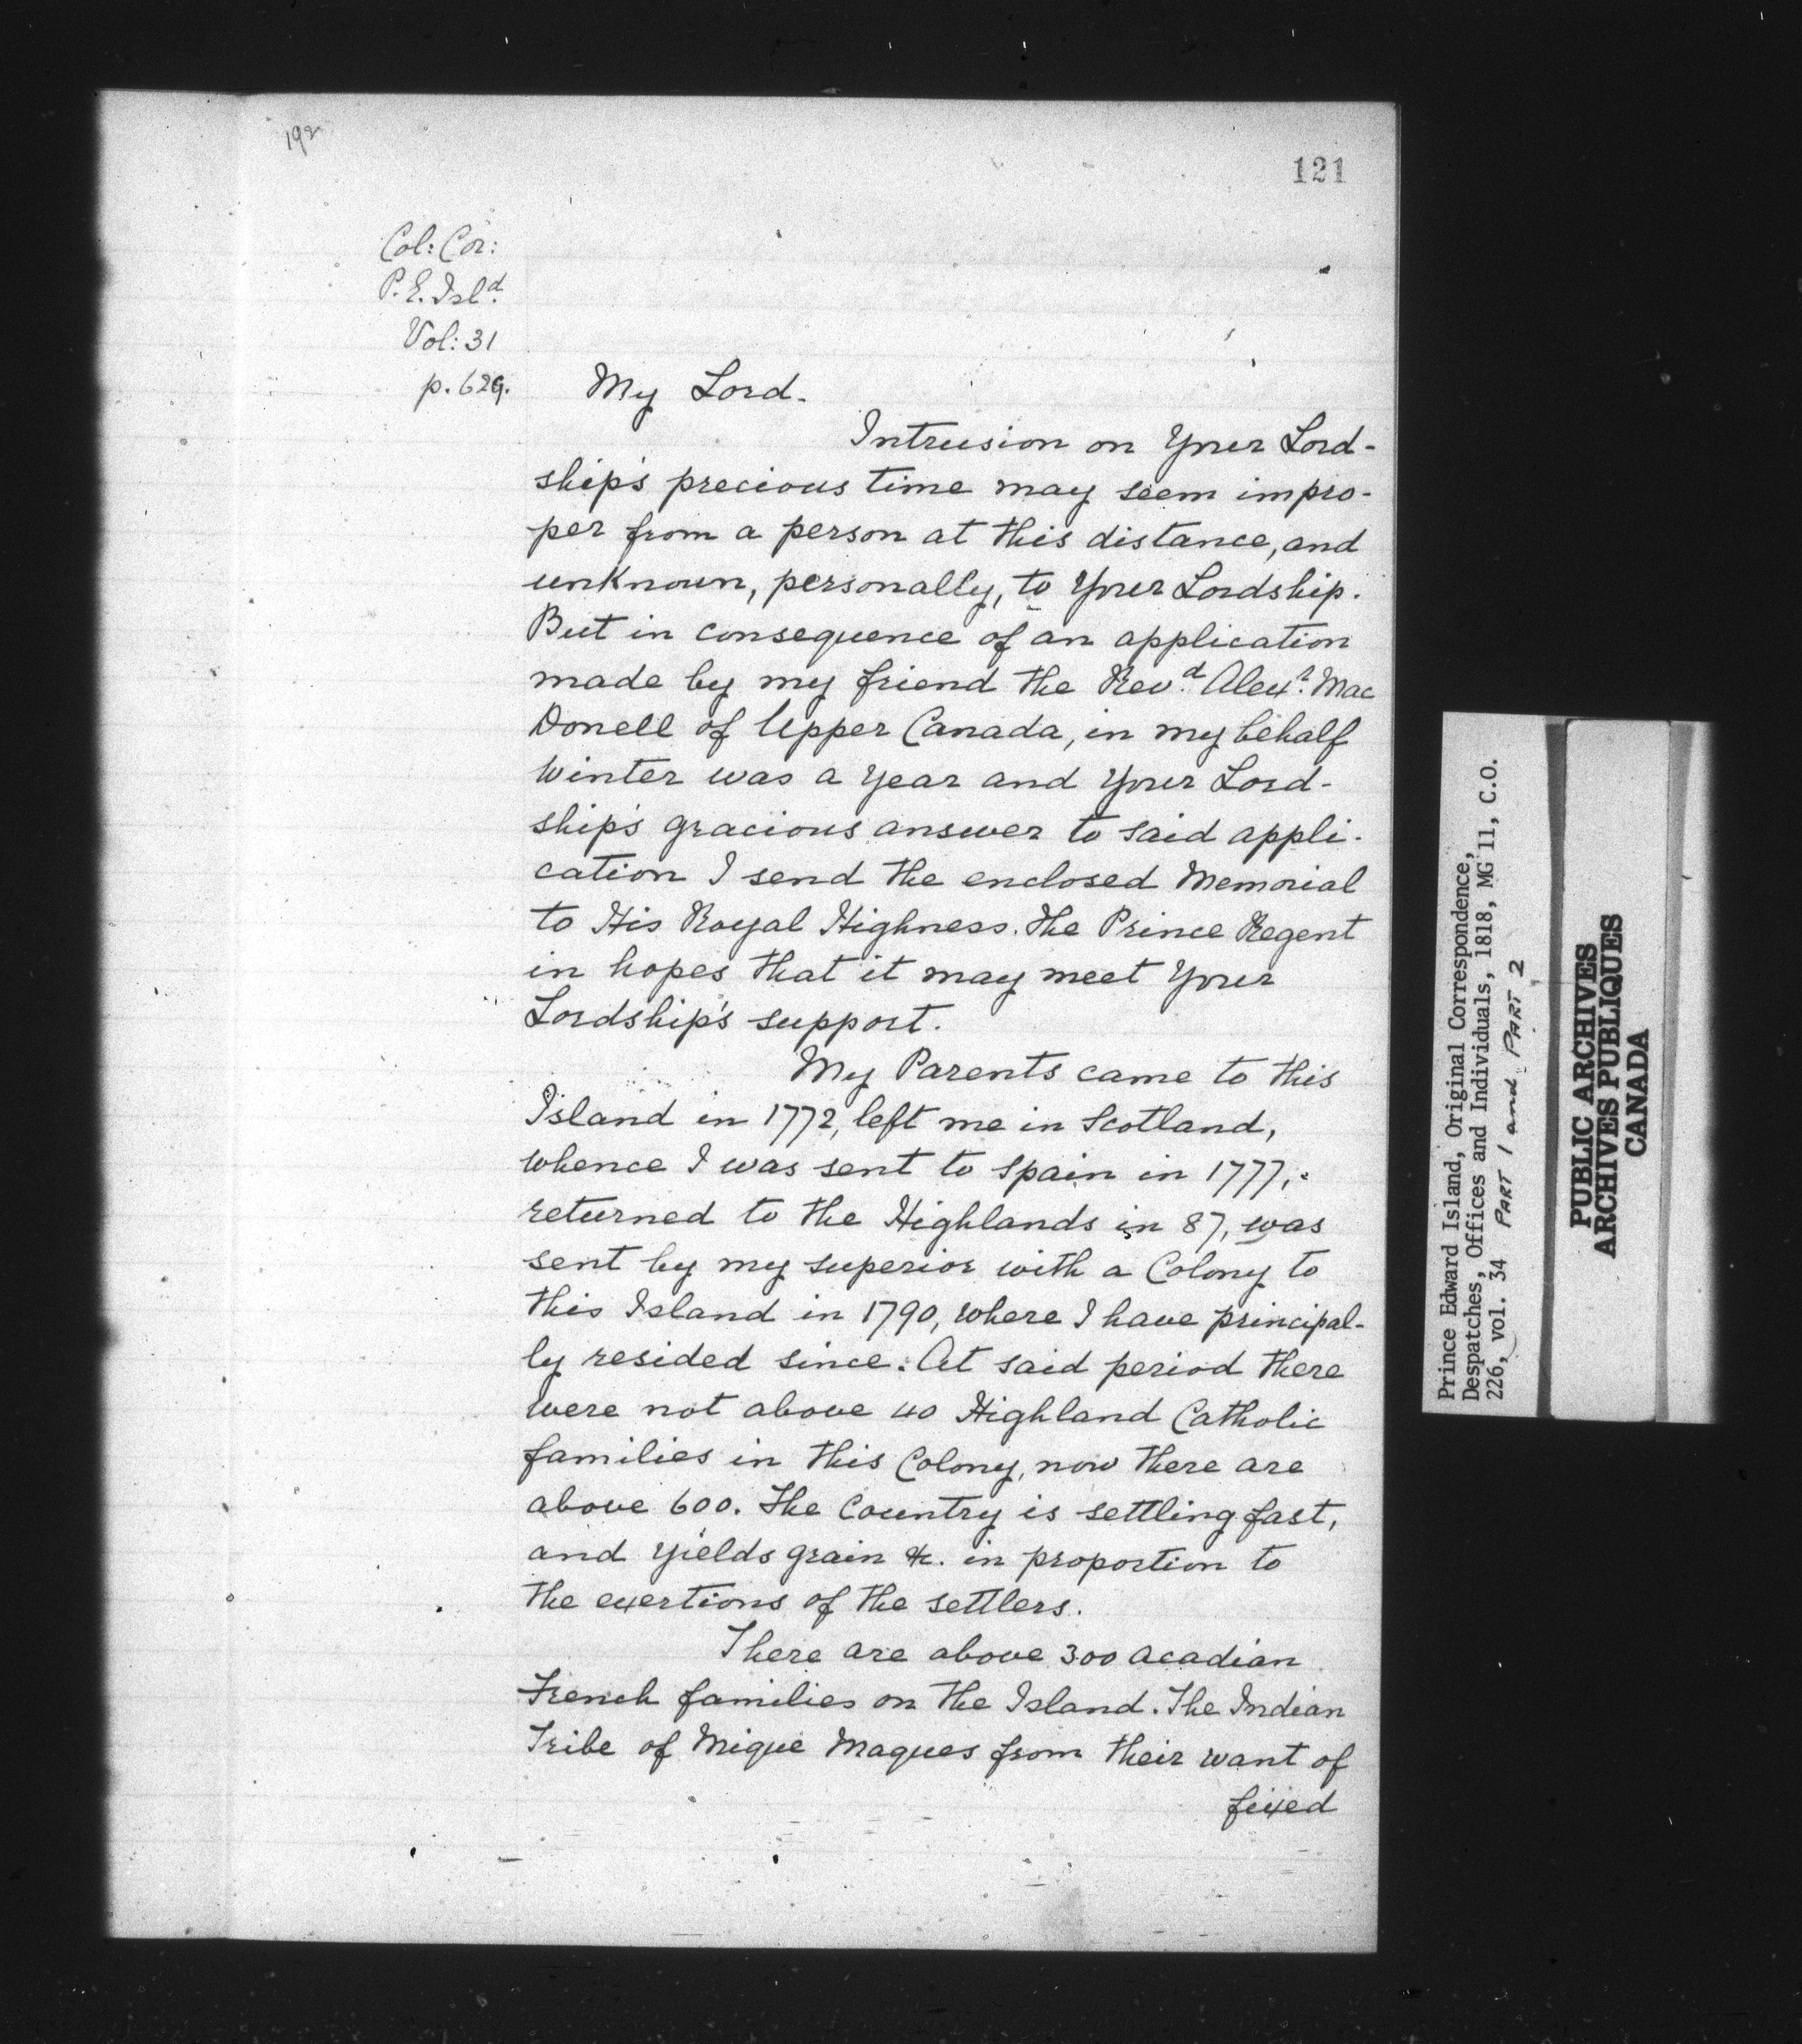 192
121
Col: Cor:
P. E. Isl.d
Vol: 31
p. 629.
My Lord.
Intrusion on Your Lord-
ship's precious time may seem impro-
per from a person at this distance, and
unknown, personally, to Your Lordship.
But in consequence of an application
made by my friend the Rev.d Alex.r Mac
Donell of Upper Canada, in my behalf
Winter was a Year and Your Lord-
ship's gracious answer to said appli-
cation I send the enclosed Memorial
to His Royal Highness. The Prince Regent
in hopes that it may meet Your
Lordship's support.
My Parents came to this
Island in 1772, left me in Scotland,
whence I was sent to Spain in 1777,
returned to the Highlands in 87, was
sent by my superior with a Colony to
this Island in 1790, where I have principal-
ly resided since. At said period there
were not above 40 Highland Catholic
families in this Colony, now there are
above 600. The Country is settling fast,
and yields grain &c. in proportion to
the exertions of the settlers.
There are above 300 Acadian
French families on the Island. The Indian
Tribe of Mique Maques from their want of
fixed
Prince Edward Island, Original Correspondence,
Despatches, Offices and Individuals, 1818, MG 11, C.O.
226, vol. 34 PART 1 and PART 2
PUBLIC ARCHIVES
ARCHIVES PUBLIQUES
CANADA